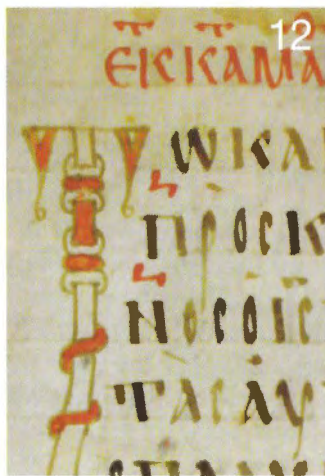 12
ЄΚΚΑΜΑ
ΤΩΚΑ
ΠΡΟCΚ
ΝΟCΟΙC
ΤΑCΑΥ